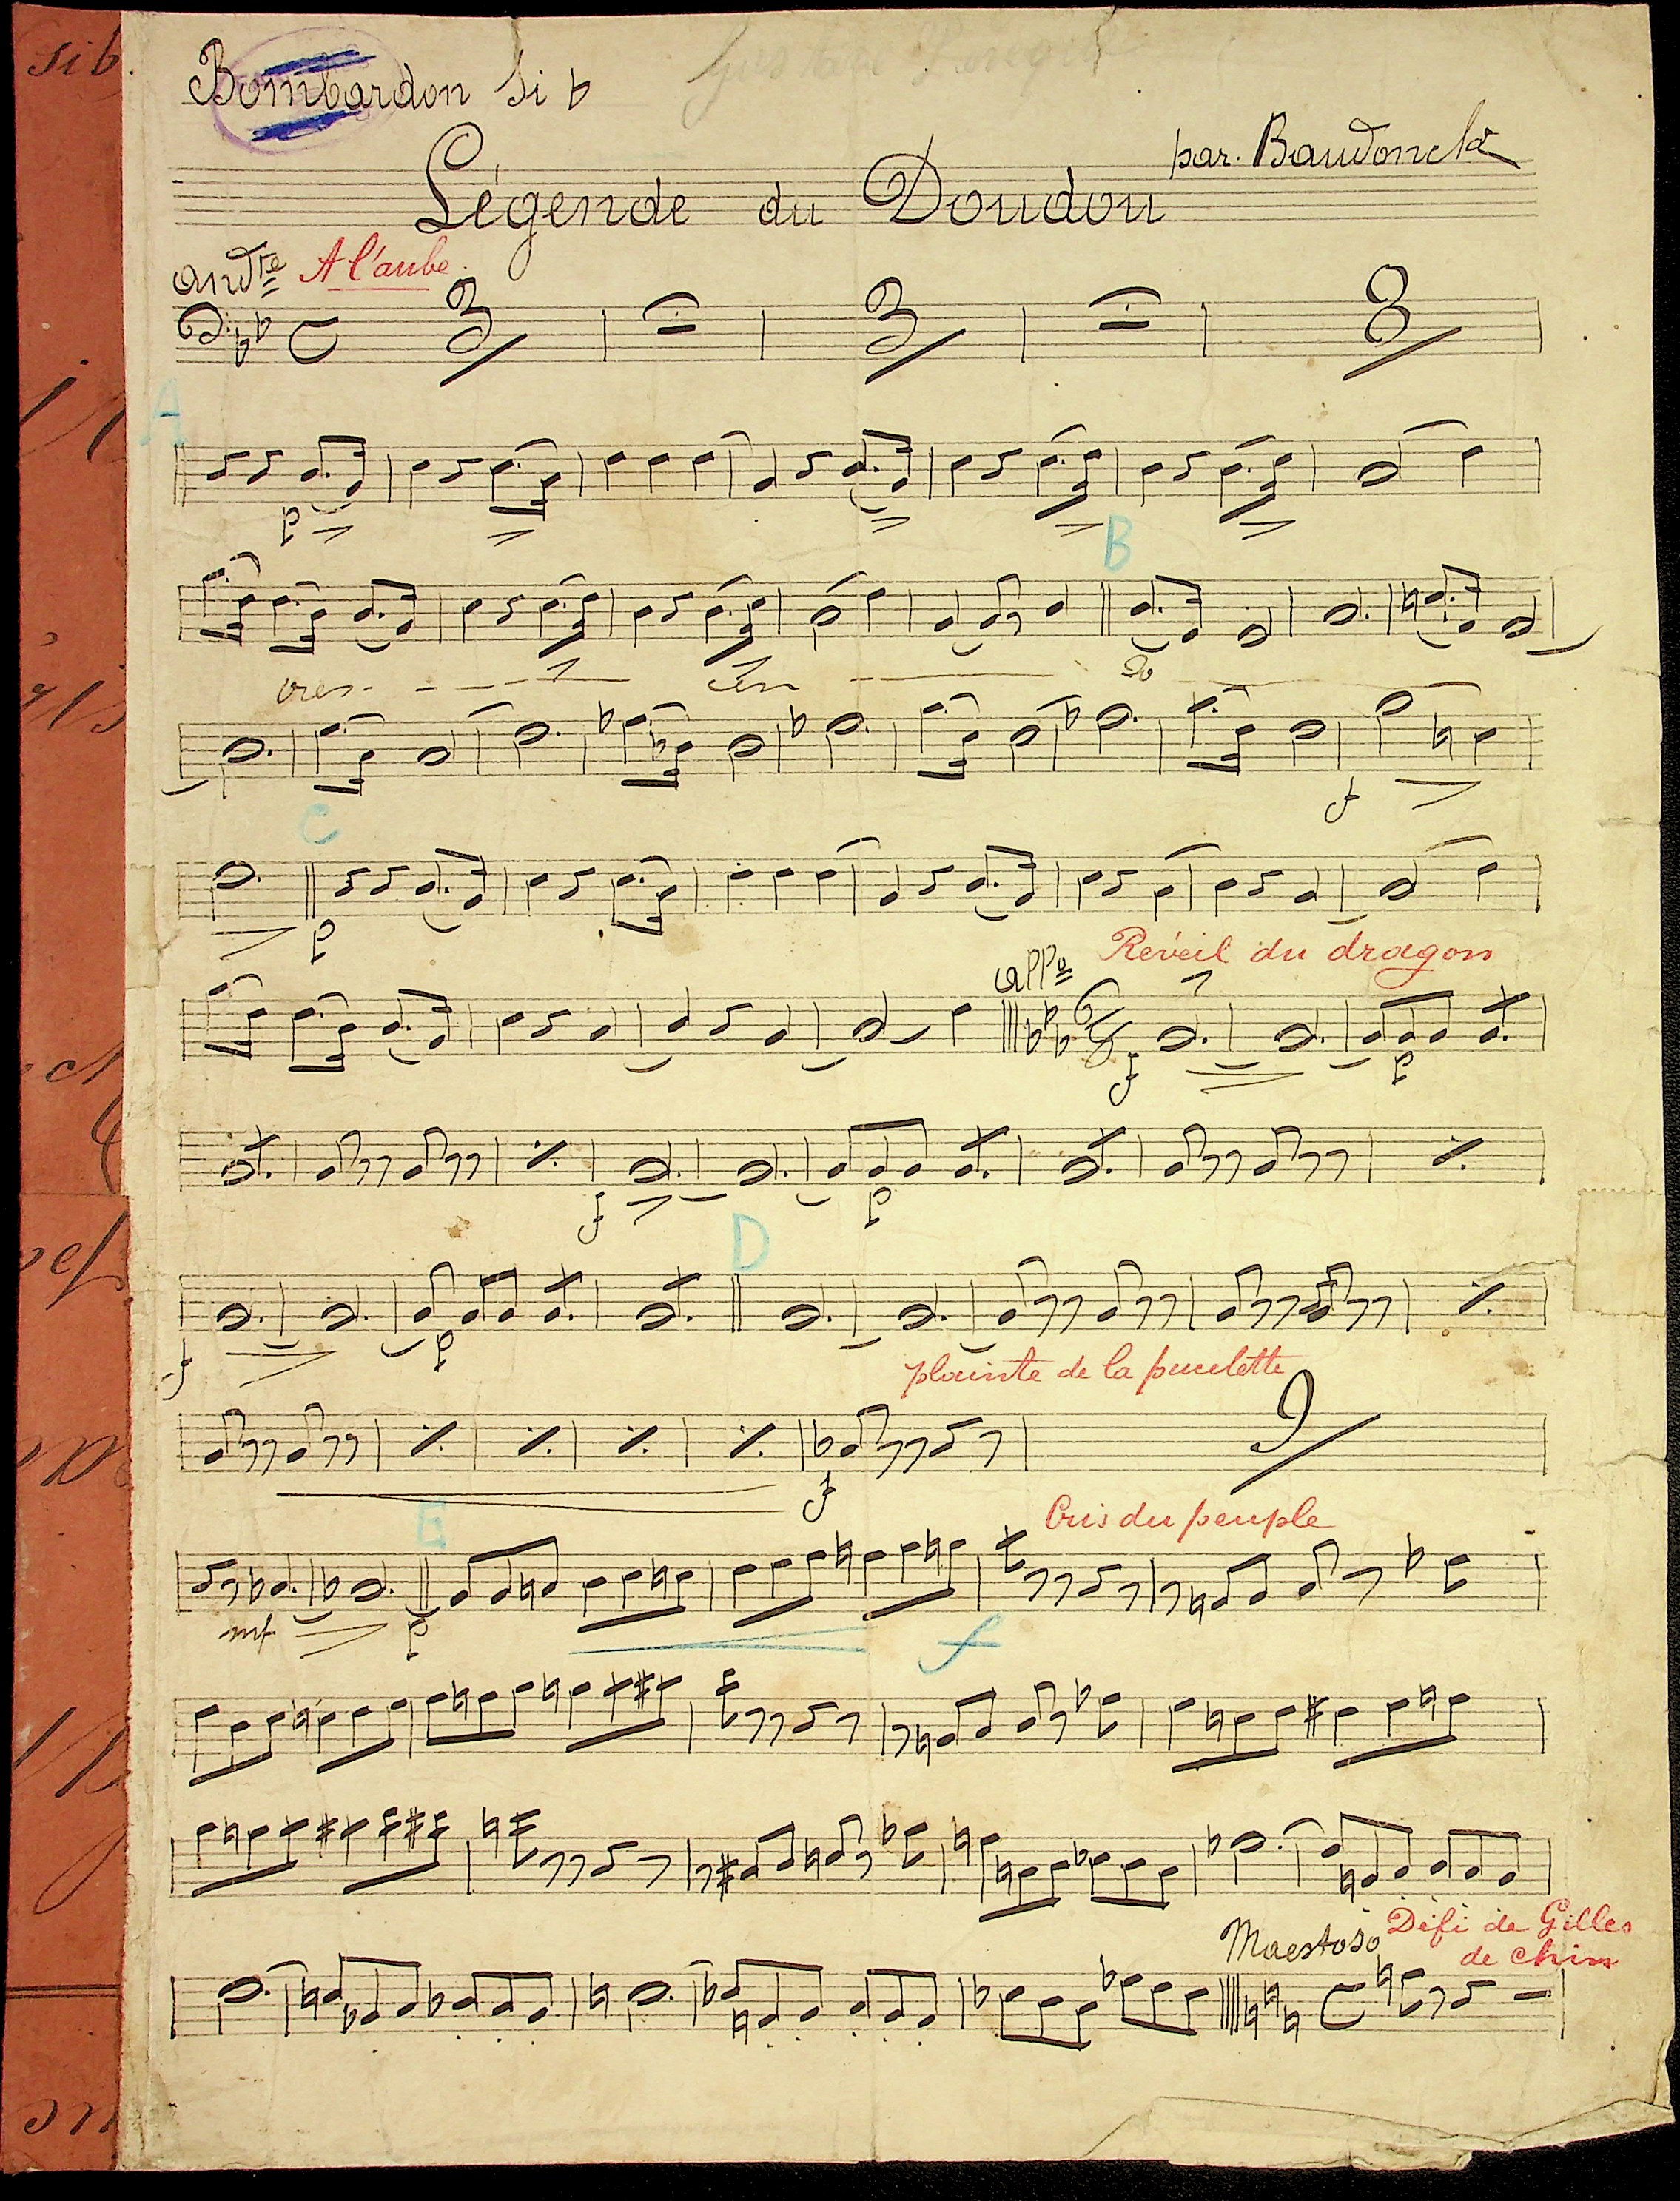 Bombardon Si b
par. Baudonck
Légende du Doudou
And.te A l'aube.
3 3 8
A
p
B
cres - - - - cen - - - - do
f
C
p
Réveil du dragon
All.o
6/8
f p
f p
D
f p
plainte de la pucelette
9
f
E
Cris du peuple
mf p f
Maestoso Défi de Gilles
de Chin